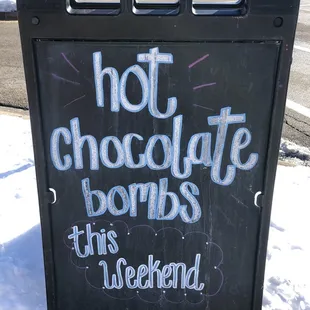 hot
chocolate
bombs
this
weekend